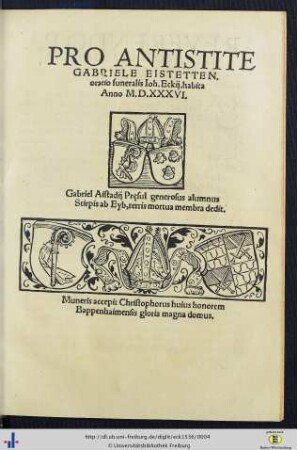 PRO ANTISTITE
GABRIELE EISTETTEN.
oratio funeralis Ioh. Eckij. habita
Anno M.D.XXXVI.
Gabriel Aistadij Pręsul generosus alumnus
Stirpis ab Eyb, terris mortua membra dedit.
Muneris accepit Christophorus huius honorem
Bappenhaimensis gloria magna domus.
http://dl.ub.uni-freiburg.de/diglit/eck1536/0004
© Universitätsbibliothek Freiburg